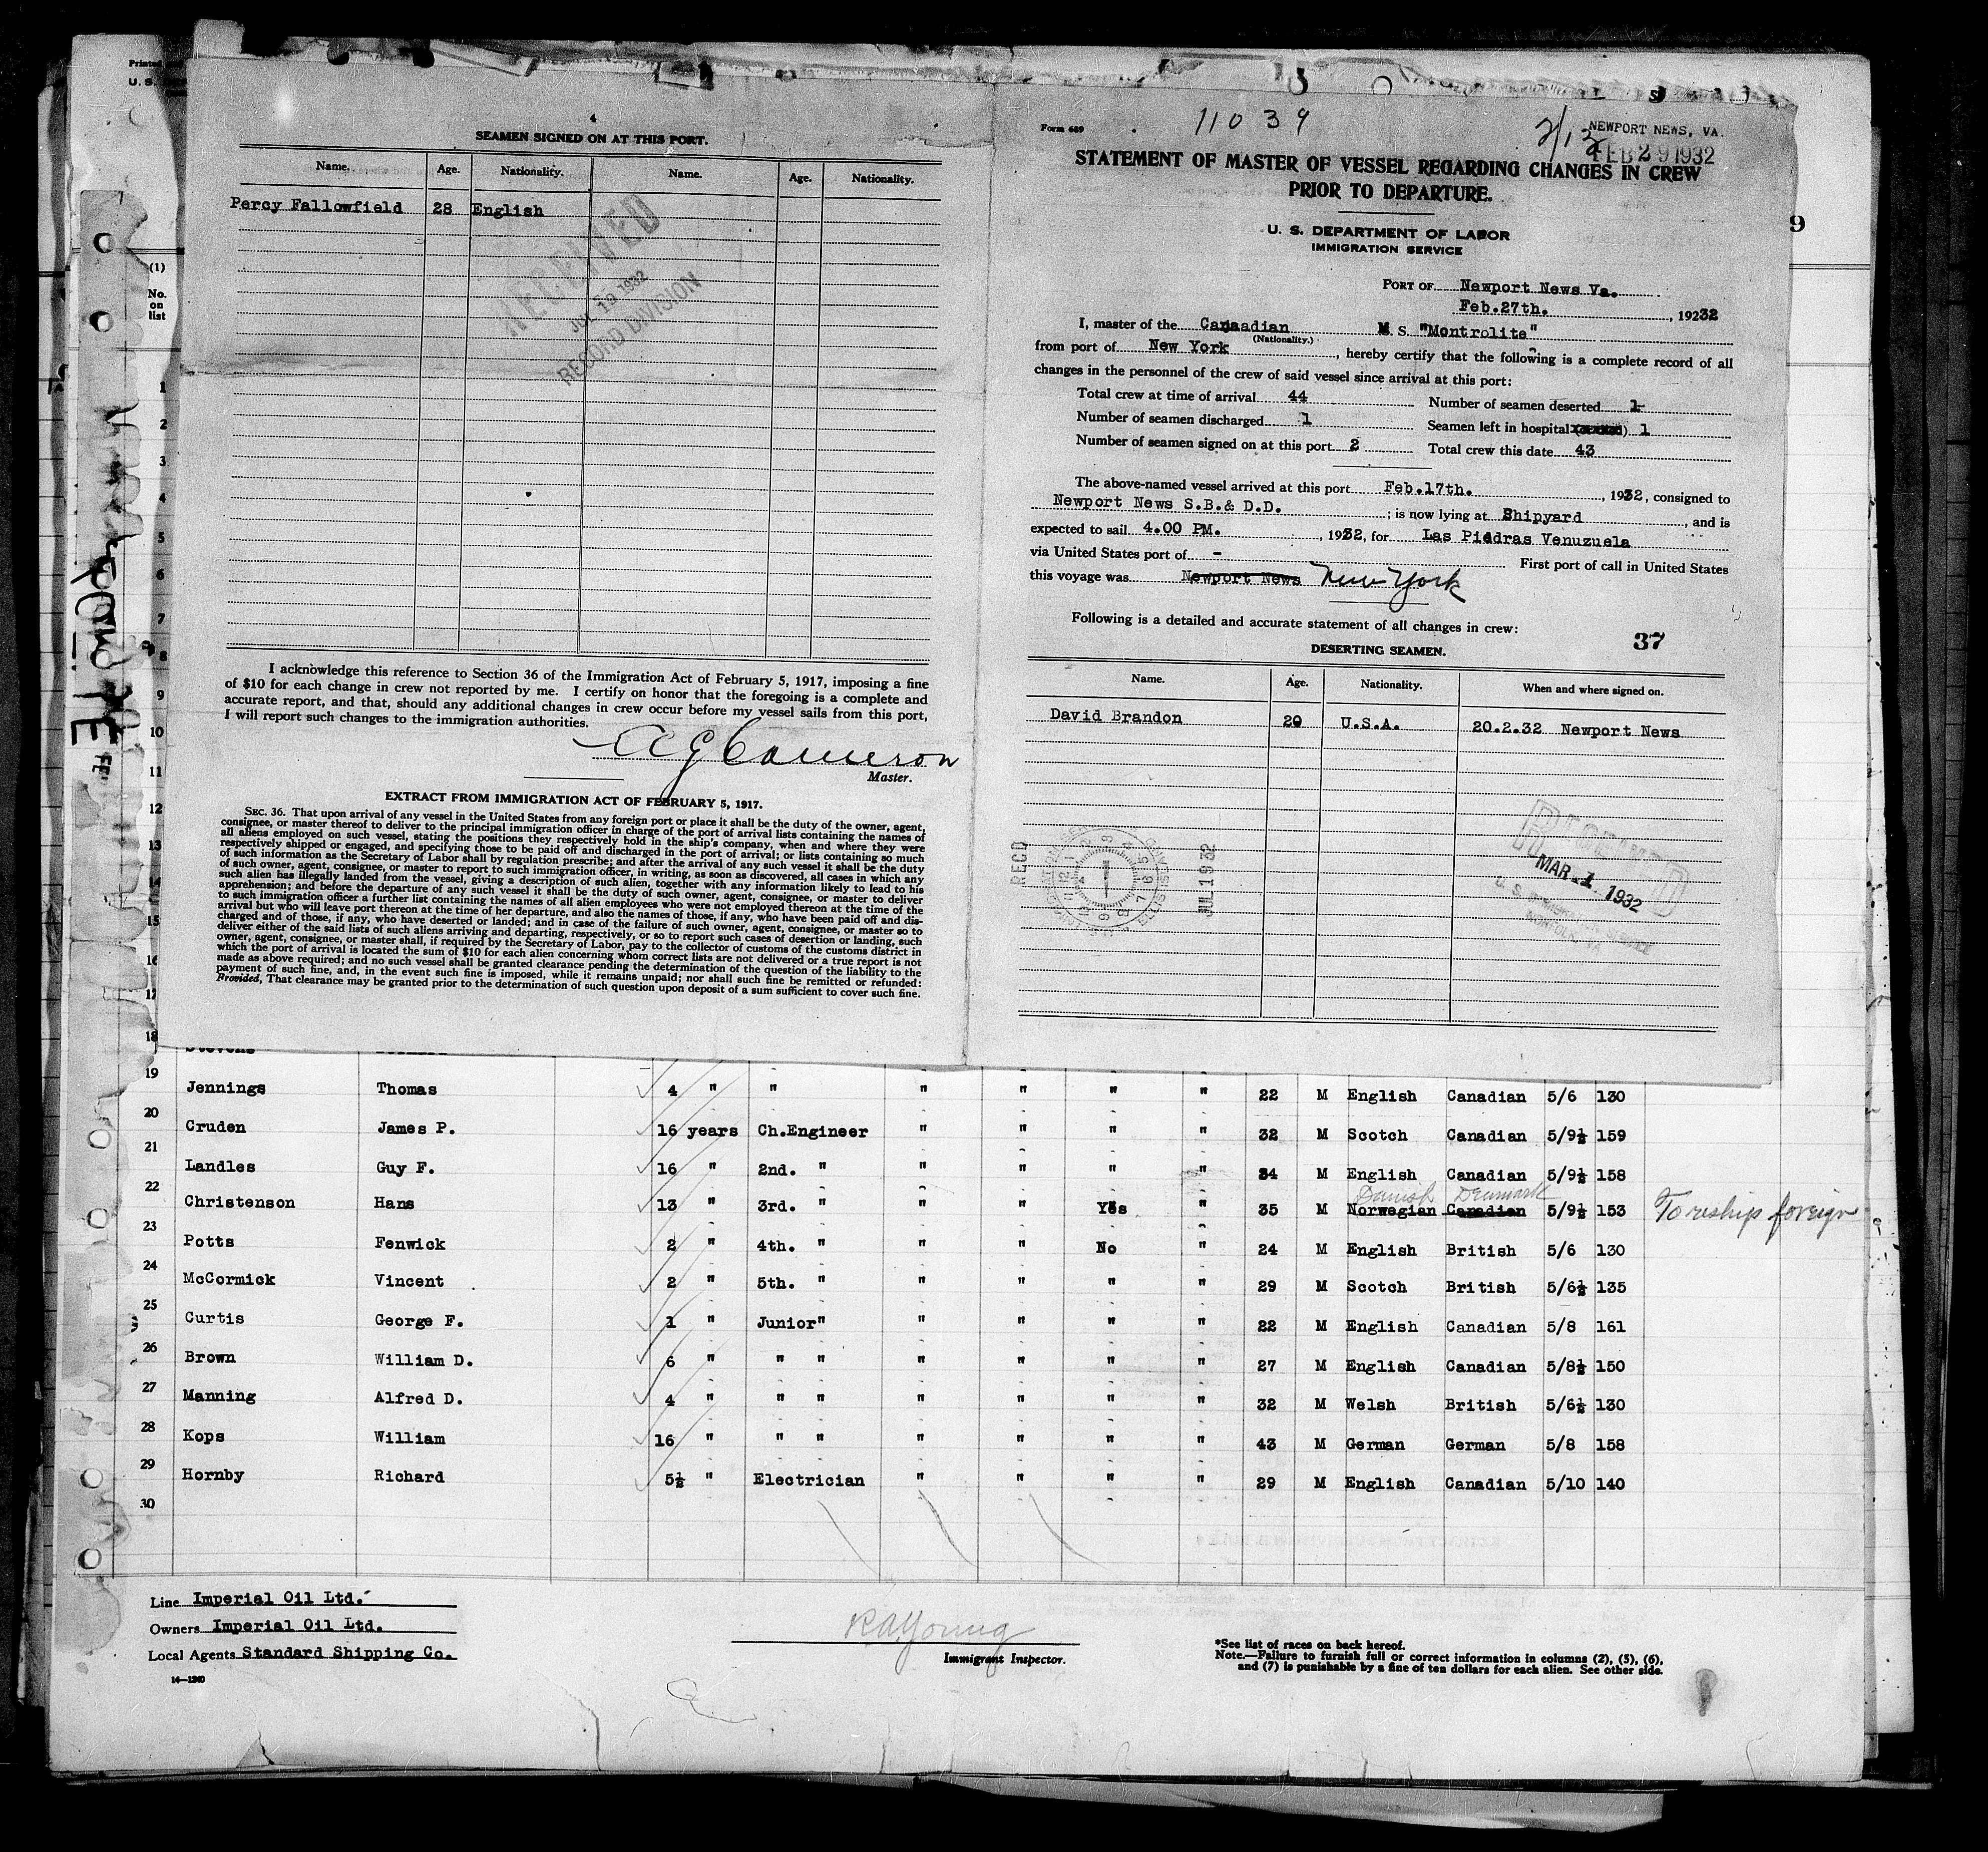 Printed
U. S.
4
SEAMEN SIGNED ON AT THIS PORT.
Name. Age. Nationality. Name. Age. Nationality.
Percy Fallowfield 28 English
RECEIVED
JUL 19 1932
RECORD DIVISION
I acknowledge this reference to Section 36 of the Immigration Act of February 5, 1917, imposing a fine
of $10 for each change in crew not reported by me. I certify on honor that the foregoing is a complete and
accurate report, and that, should any additional changes in crew occur before my vessel sails from this port,
I will report such changes to the immigration authorities.
A G Cameron
Master.
EXTRACT FROM IMMIGRATION ACT OF FEBRUARY 5, 1917.
SEC. 36. That upon arrival of any vessel in the United States from any foreign port or place it shall be the duty of the owner, agent,
consignee, or master thereof to deliver to the principal immigration officer in charge of the port of arrival lists containing the names of
all aliens employed on such vessel, stating the positions they respectively hold in the ship's company, when and where they were
respectively shipped or engaged, and specifying those to be paid off and discharged in the port of arrival; or lists containing so much
of such information as the Secretary of Labor shall by regulation prescribe; and after the arrival of any such vessel it shall be the duty
of such owner, agent, consignee, or master to report to such immigration officer, in writing, as soon as discovered, all cases in which any
such alien has illegally landed from the vessel, giving a description of such alien, together with any information likely to lead to his
apprehension; and before the departure of any such vessel it shall be the duty of such owner, agent, consignee, or master to deliver
to such immigration officer a further list containing the names of all alien employees who were not employed thereon at the time of the
arrival but who will leave port thereon at the time of her departure, and also the names of those, if any, who have been paid off and dis-
charged and of those, if any, who have deserted or landed; and in case of the failure of such owner, agent, consignee, or master so to
deliver either of the said lists of such aliens arriving and departing, respectively, or so to report such cases of desertion or landing, such
owner, agent, consignee, or master shall, if required by the Secretary of Labor, pay to the collector of customs of the customs district in
which the port of arrival is located the sum of $10 for each alien concerning whom correct lists are not delivered or a true report is not
made as above required; and no such vessel shall be granted clearance pending the determination of the question of the liability to the
payment of such fine, and, in the event such fine is imposed, while it remains unpaid; nor shall such fine be remitted or refunded:
Provided, That clearance may be granted prior to the determination of such question upon deposit of a sum sufficient to cover such fine.
Form 689
11039
2/13
NEWPORT NEWS, VA.
FEB 29 1932
STATEMENT OF MASTER OF VESSEL REGARDING CHANGES IN CREW
PRIOR TO DEPARTURE.
U. S. DEPARTMENT OF LABOR
IMMIGRATION SERVICE
PORT OF Newport News Va.
Feb.27th. , 19232
I, master of the Canaadian M S. "Montrolite"
(Nationality.)
from port of New York , hereby certify that the following is a complete record of all
changes in the personnel of the crew of said vessel since arrival at this port:
Total crew at time of arrival 44 Number of seamen deserted 1
Number of seamen discharged 1 Seamen left in hospital 1
Number of seamen signed on at this port 2 Total crew this date 43
The above-named vessel arrived at this port Feb.17th. , 1932, consigned to
Newport News S.B.& D.D. ; is now lying at Shipyard , and is
expected to sail 4.00 PM. , 1932, for Las Piedras Venuzuela
via United States port of - First port of call in United States
this voyage was Newport News New York
Following is a detailed and accurate statement of all changes in crew:
37
DESERTING SEAMEN.
Name. Age. Nationality. When and where signed on.
David Brandon 20 U.S.A. 20.2.32 Newport News
RECD
JUL 1 9 32
MAR -1 1932
NORFOLK, VA
9
(1)
No.
on
list
1
2
3
4
5
6
7
8
9
10
11
12
13
14
15
16
17
18 Stevens
19 Jennings Thomas 4 " " " " " " 22 M English Canadian 5/6 130
20 Cruden James P. 16 years Ch.Engineer " " " " 32 M Scotch Canadian 5/9½ 159
21 Landles Guy F. 16 " 2nd. " " " " " 34 M English Canadian 5/9½ 158
Danish Denmark
22 Christenson Hans 13 " 3rd. " " " Yes " 35 M Norwegian Canadian 5/9½ 153 To reship foreign
23 Potts Fenwick 2 " 4th. " " " No " 24 M English British 5/6 130
24 McCormick Vincent 2 " 5th. " " " " " 29 M Scotch British 5/6½ 135
25 Curtis George F. 1 " Junior" " " " " 22 M English Canadian 5/8 161
26 Brown William D. 6 " " " " " " " 27 M English Canadian 5/8½ 150
27 Manning Alfred D. 4 " " " " " " " 32 M Welsh British 5/6½ 130
28 Kops William 16 " " " " " " " 43 M German German 5/8 158
29 Hornby Richard 5½ " Electrician " " " " 29 M English Canadian 5/10 140
30
Line Imperial Oil Ltd.
Owners Imperial Oil Ltd.
Local Agents Standard Shipping Co.
14—1240
R A Young
Immigrant Inspector.
*See list of races on back hereof.
Note.—Failure to furnish full or correct information in columns (2), (5), (6),
and (7) is punishable by a fine of ten dollars for each alien. See other side.